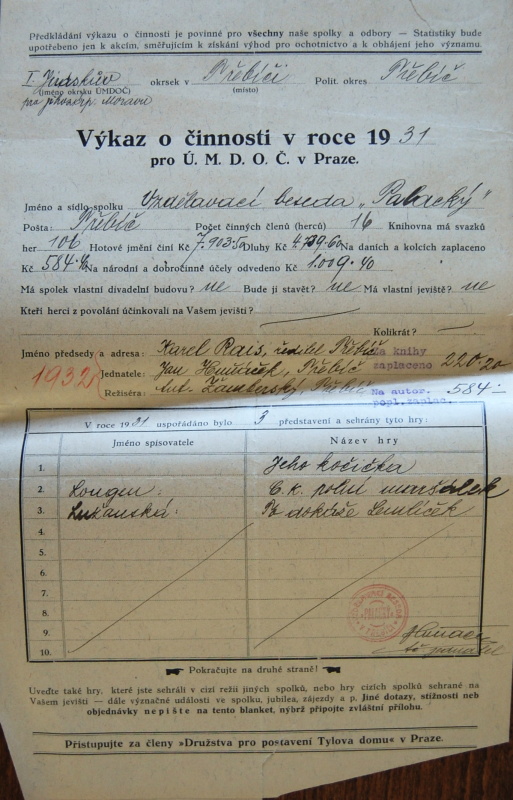 Předkládání výkazu o činnosti je povinné pro všechny naše spolky a odbory — Statistiky bude
upotřebeno jen k akcím, směřujícím k získání výhod pro ochotnictvo a k obhájení jeho významu.
I. okrsek v Třebíči Polit. okres Třebíč
(jméno okrsku ÚMDOČ) (místo)
pro Moravu
Výkaz o činnosti v roce 1931
pro Ú. M. D. O. Č. v Praze.
Jméno a sídlo spolku Vzdělavací beseda „Palacký"
Pošta: Třebíč Počet činných členů (herců) 16 Knihovna má svazků
her 106 Hotové jmění činí Kč 7.903.50 Dluhy Kč Na daních a kolcích zaplaceno
Kč 584.– Na národní a dobročinné účely odvedeno Kč 1.009.40
Má spolek vlastní divadelní budovu? ne Bude jí stavět? ne Má vlastní jeviště? ne
Kteří herci z povolání účinkovali na Vašem jevišti? —
Kolikrát? —
Jméno předsedy a adresa: Karel Rais, ředitel Třebíč
Za knihy
zaplaceno 220.20
1932
Jednatele: Jan Třebíč
Režiséra: Ant. Zámberský, Třebíč
Na autor.
popl. zaplac. 584–
V roce 1931 uspořádáno bylo 3 představení a sehrány tyto hry:
Jméno spisovatele Název hry
1. Jeho kočička
2. Longen: C. k. polní maršálek
3. Lužanská: dokáže
4.
5.
6.
7.
8.
9.
10.
Pokračujte na druhé straně!
Uveďte také hry, které jste sehráli v cizí režii jiných spolků, nebo hry cizích spolků sehrané na
Vašem jevišti — dále význačné události ve spolku, jubilea, zájezdy a p. Jiné dotazy, stížnosti neb
objednávky nepište na tento blanket, nýbrž připojte zvláštní přílohu.
Přistupujte za členy »Družstva pro postavení Tylova domu« v Praze.